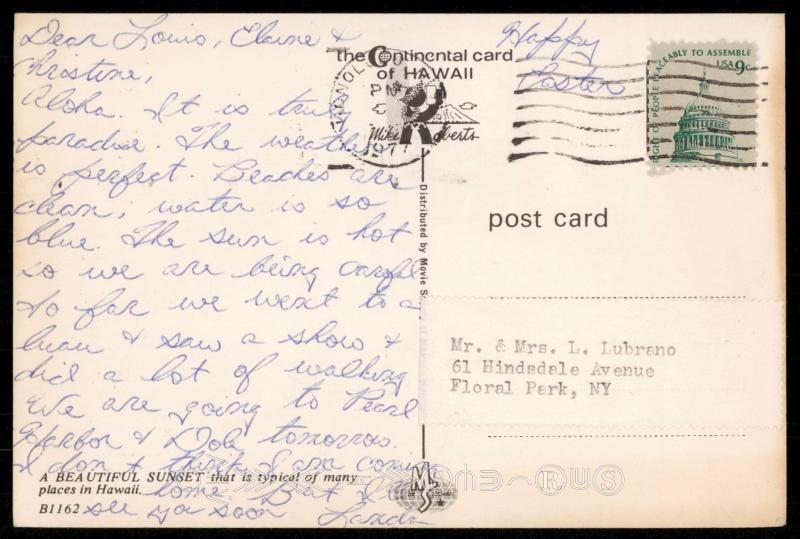 Dear Louis, Elaine &
Christine,
Aloha. It is truly
paradise. The weather
is perfect. Beaches are
clean; water is so
blue. The sun is hot
so we are being careful
So far we went to a
luau & saw a show &
did a lot of walking
We are going to Pearl
Harbor & Dole tomorrow.
I don't think I am coming
home. But I'll
see ya soon
Happy
Easter
the Continental card
of HAWAII
Mike Roberts
HONOLULU
PM
197
RIGHT OF PEOPLE PEACEABLY TO ASSEMBLE
USA 9c
post card
Distributed by Movie S
Mr. & Mrs. L. Lubrano
61 Hindsdale Avenue
Floral Park, NY
A BEAUTIFUL SUNSET that is typical of many
places in Hawaii.
B1162
MSS